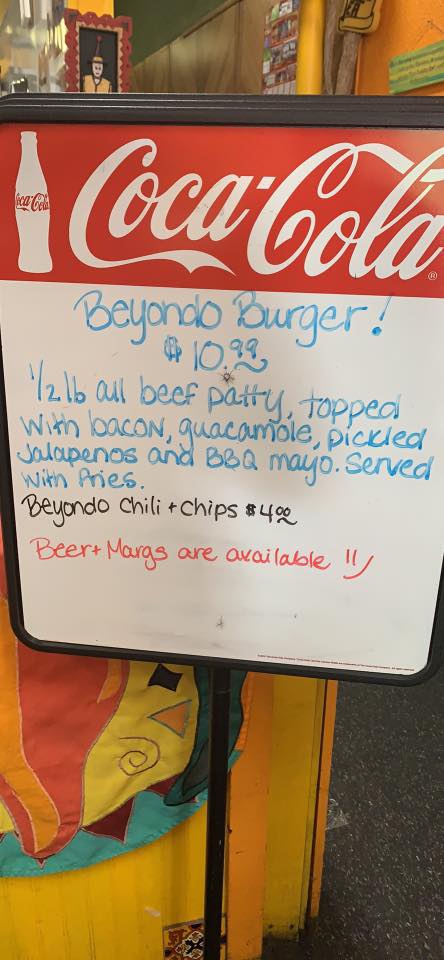 Coca-Cola
Coca-Cola
Beyondo Burger!
$10.99
1/2 lb all beef patty, topped
with bacon, guacamole, pickled
Jalapenos and BBQ mayo. Served
with fries.
Beyondo Chili + Chips $4.00
Beer + Margs are available !!